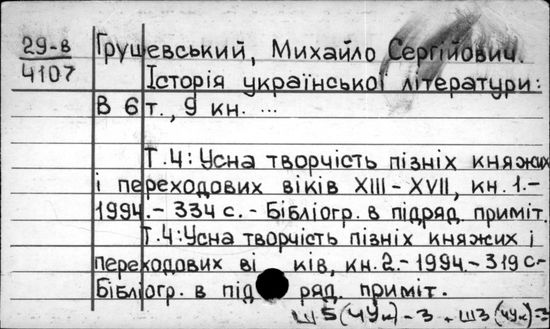 29-в
4107
Грушевський, Михайло Сергійович.
Історія української літератури:
В 6 т., 9 кн. ...
Т.4: Усна творчість пізніх княжих
і переходових віків XIII – XVII, кн. 1.-
1994.- 334 с. - Бібліогр. в підряд. приміт.
Т.4: Усна творчість пізніх княжих і
переходових ві ків, кн. 2.- 1994.- 319 с.-
Бібліогр. в під ряд. приміт.
ш5(4Ук)-3 + шз(4Ук)=3